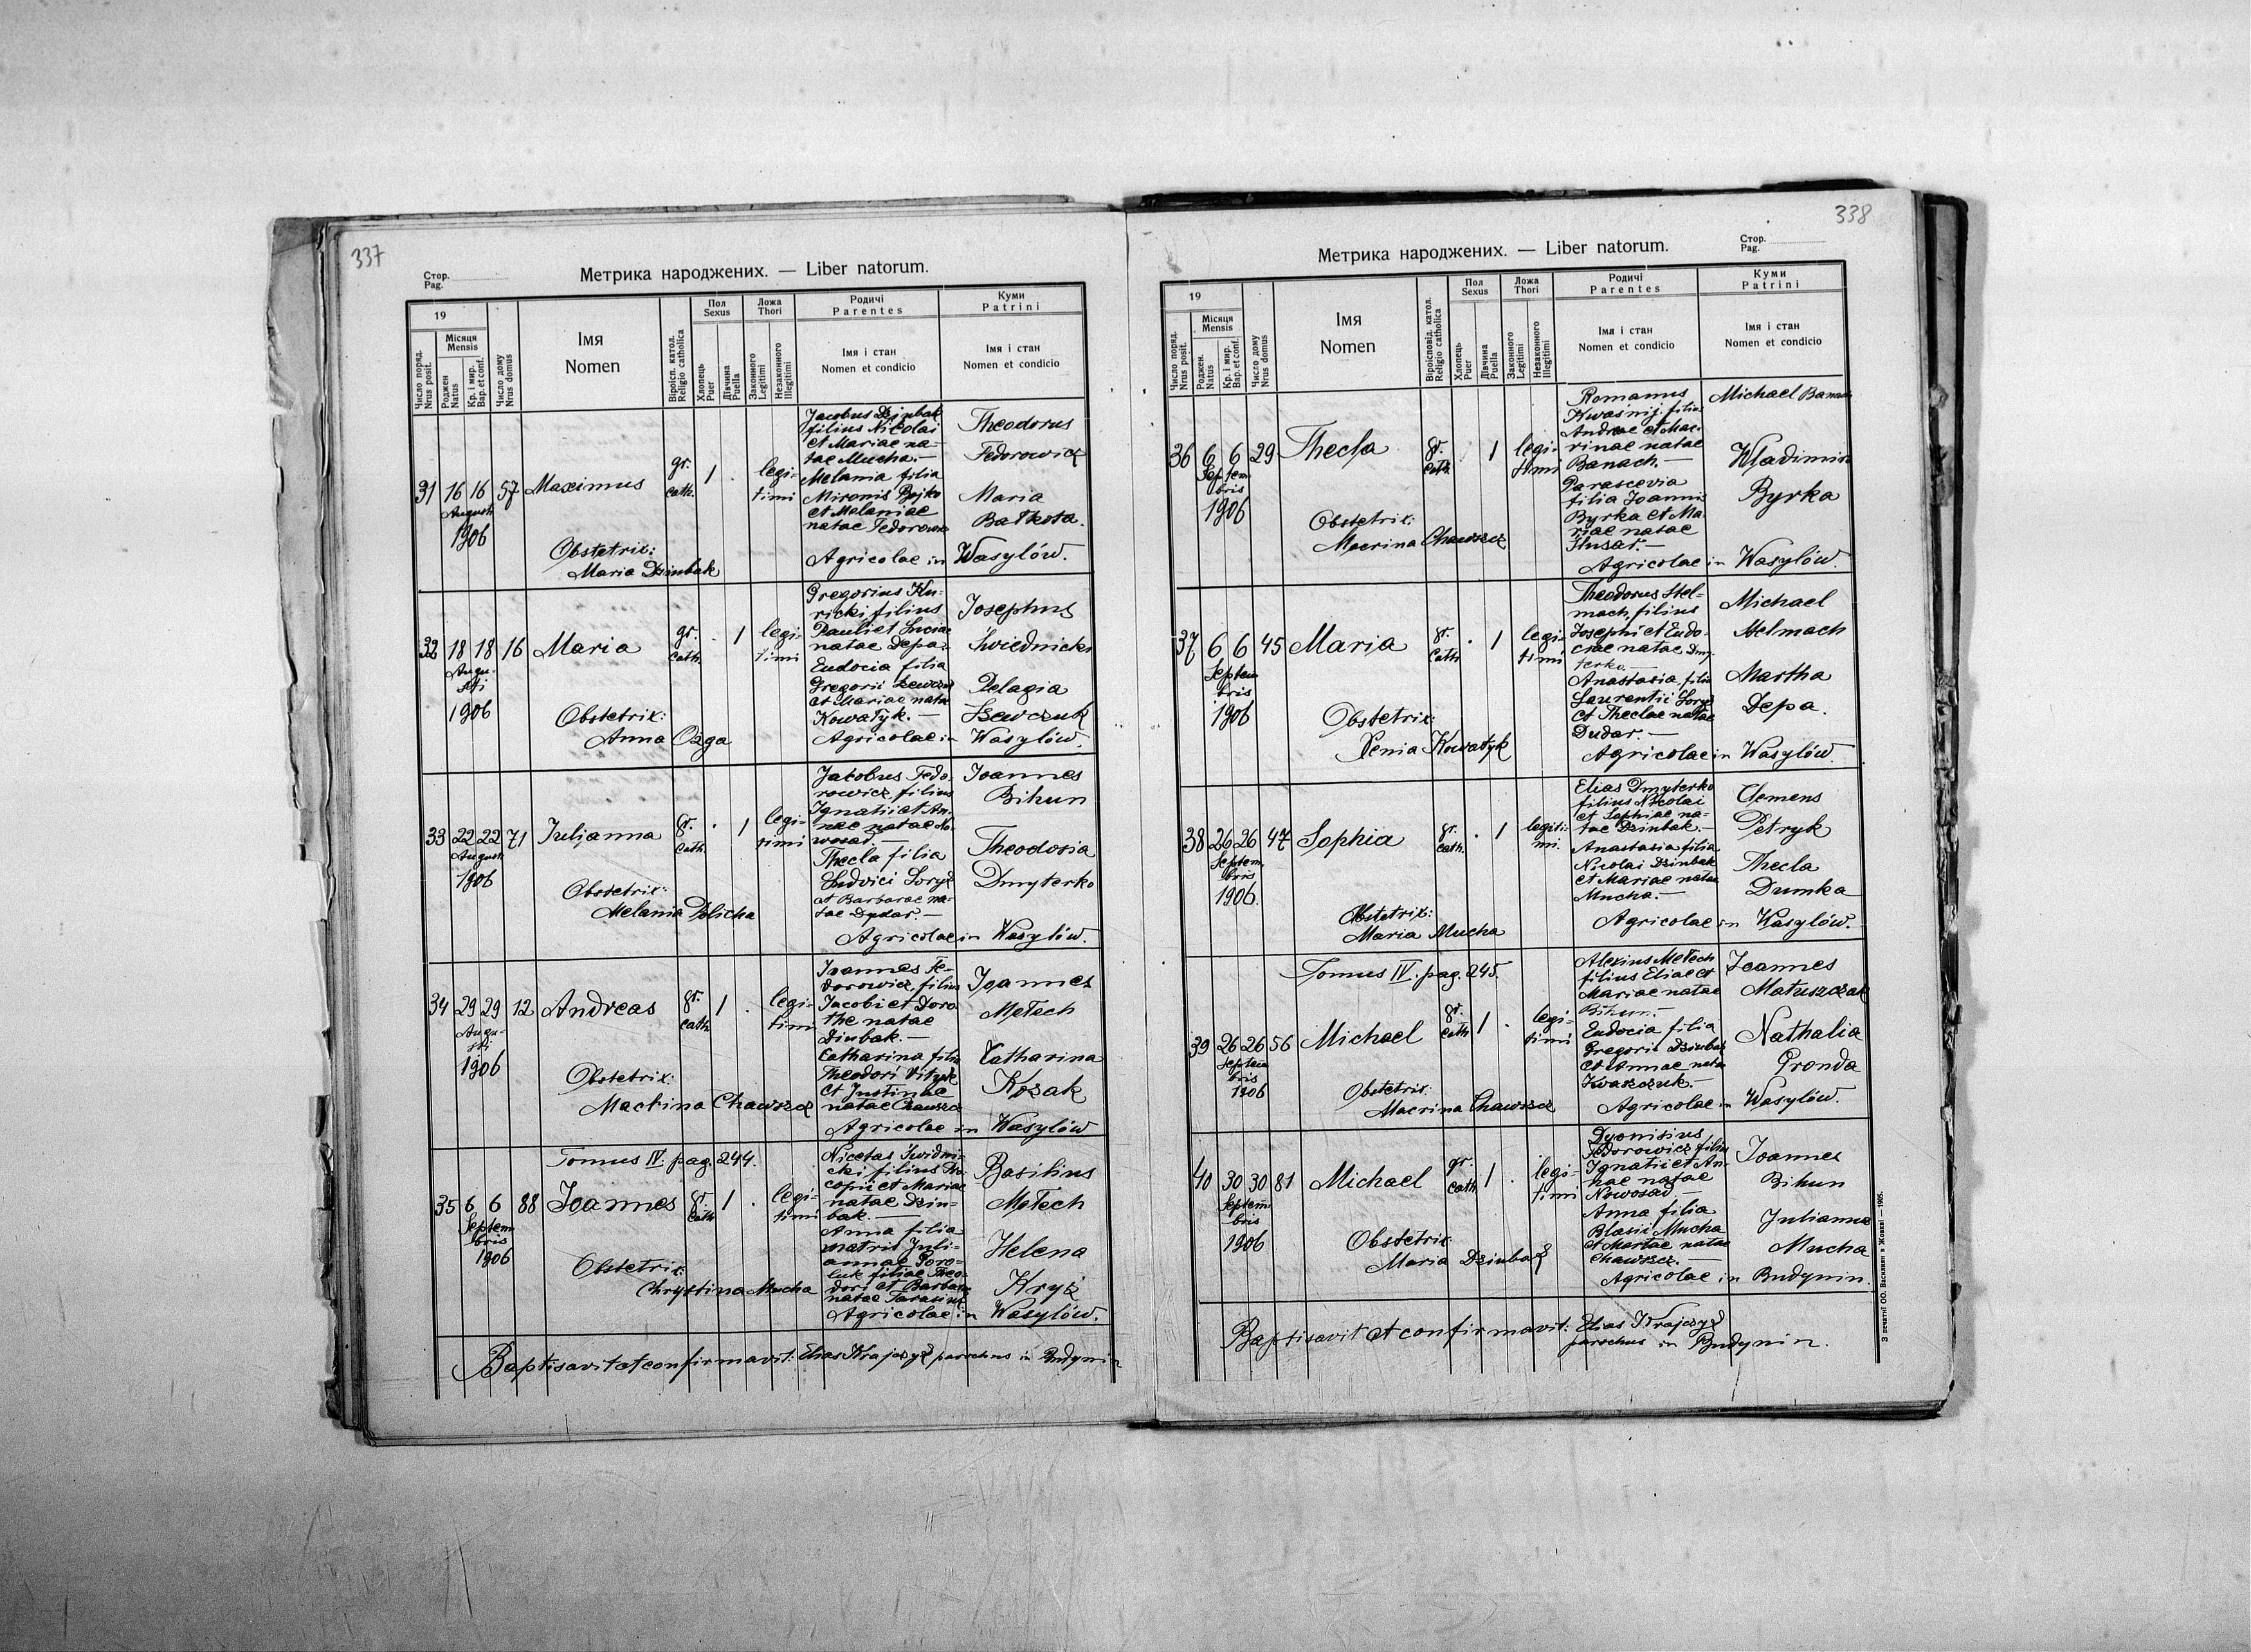 337
Стор.
Pag.
Метрика народжених. — Liber natorum.
19
Число поряд.
Nrus posit.
Місяця
Mensis
Роджен
Natus
Кр. і мир.
Bap. et conf.
Число дому
Nrus domus
Імя
Nomen
Віроісп. катол.
Religio catholica
Пол
Sexus
Хлопець
Puer
Дівчина
Puella
Ложа
Thori
Законного
Legitimi
Незаконного
Illegitimi
Родичі
Parentes
Імя і стан
Nomen et condicio
Куми
Patrini
Імя і стан
Nomen et condicio
31 16 16 57 Maximus gr. cath. 1 . legi-
timi
Augusti
1906
Obstetrix:
Maria Dziubak
Jacobus Dziubak
filius Nicolai
et Mariae na-
tae Mucha.—
Melania filia
Mironis Bojko
et Melaniae
natae Fedorowicz
Agricolae in Wasylów.
Theodorus
Fedorowicz
Maria
Bałkota.
32 18 18 16 Maria gr. cath. . 1 legi-
timi
Augu-
sti
1906
Obstetrix:
Anna Ozga
Gregorius Ku-
ricki filius
Pauli et Luciae
natae Depa.
Eudocia filia
Gregorii Szewczuk
et Mariae natae
Kowałyk.—
Agricolae in Wasylów.
Josephus
Swiednicki
Pelagia
Szewczuk
33 22 22 71 Julianna gr. cath. . 1 legi-
timi
Augusti
1906
Obstetrix:
Melania Dolicha
Jacobus Fedo-
rowicz, filius
Ignatii et An-
nae natae No-
wosad.—
Thecla filia
Ludvici Soryż
et Barbarae na-
tae Dydar.—
Agricolae in Wasylów.
Joannes
Bihun
Theodosia
Dmyterko
34 29 29 12 Andreas gr. cath. 1 . legi-
timi
Augu-
sti
1906
Obstetrix:
Macrina Chawszcz
Joannes Fe-
dorowicz, filius
Jacobi et Doro
the natae
Dziubak.—
Catharina filia
Theodori Vityk
et Justinae
natae Chawszcz
Agricolae in Wasylów
Joannes
Metech
Catharina
Kozak
Tomus IV. pag. 244.
35 6 6 88 Joannes gr. cath. 1 . legi-
timi
Septem
bris
1906
Obstetrix:
Chrystina Mucha
Nicetas Swidni-
cki filius Pro-
copii et Mariae
natae Dziu-
bak.—
Anna filia
matris Juli-
annae Doro-
luk filiae Theo-
dori et Barbarae
natae Tarasiuk
Agricolae in Wasylów.
Basilius
Metech
Helena
Kryż
Baptisavit et confirmavit: Elias Krajczyk parochus in Budynin
338
Метрика народжених. — Liber natorum.
Стор.
Pag.
19
Число поряд.
Nrus posit.
Місяця
Mensis
Роджен.
Natus
Кр. і мир.
Bap. et conf.
Число дому
Nrus domus
Імя
Nomen
Віроісповід. катол.
Religio catholica
Пол
Sexus
Хлопець
Puer
Дівчина
Puella
Ложа
Thori
Законного
Legitimi
Незаконного
Illegitimi
Родичі
Parentes
Імя і стан
Nomen et condicio
Куми
Patrini
Імя і стан
Nomen et condicio
36 6 6 29 Thecla gr. cath. . 1 legi-
timi
Septem
bris
1906
Obstetrix:
Macrina Chawszcz
Romanus
Kwasnij filius
Andreae et Mac-
rinae natae
Banach.—
Parascevia
filia Joannis
Byrka et Ma-
riae natae
Husar.—
Agricolae in Wasylów.
Michael Banach
Wladimir
Byrka
37 6 6 45 Maria gr. cath. . 1 legi-
timi
Septem
bris
1906
Obstetrix:
Xenia Kowałyk
Theodorus Stel-
mach, filius
Josephi et Eudo-
ciae natae Dmy-
terko.—
Anastasia, filia
Laurentii Soryż
et Theclae natae
Dudar.—
Agricolae in Wasylów.
Michael
Stelmach
Martha
Depa.
38 26 26 47 Sophia gr. cath. . 1 legiti-
mi.
Septem
bris
1906.
Obstetrix:
Maria Mucha
Elias Dmyterko
filius Nicolai
et Sophiae na-
tae Dziubak.—
Anastasia filia
Nicolai Dziubak
et Mariae natae
Mucha.—
Agricolae in Wasylów.
Clemens
Petryk
Thecla
Dumka
Tomus IV. pag. 245.
39 26 26 56 Michael gr. cath. 1 . legi-
timi
Septem
bris
1906
Obstetrix:
Macrina Chawszcz
Alexius Metech
filius Eliae et
Mariae natae
Bihun.—
Eudocia filia
Gregorii Dziubak
et Annae natae
Kwaszczuk.—
Agricolae in Wasylów.
Joannes
Matuszczak
Nathalia
Gronda
40 30 30 81 Michael gr. cath. 1 . legi-
timi
Septem
bris
1906
Obstetrix
Maria Dziubak
Dyonisius
Fedorowicz filius
Ignatii et An-
nae natae
Nowosad —
Anna filia
Blasii Mucha
et Martae natae
Chawszcz.—
Agricolae in Budynin.
Joannes
Bihun
Julianna
Mucha
Baptisavit et confirmavit: Elias Krajczyk
parochus in Budynin.
З печатнї ОО. Василиян в Жовкві — 1905.